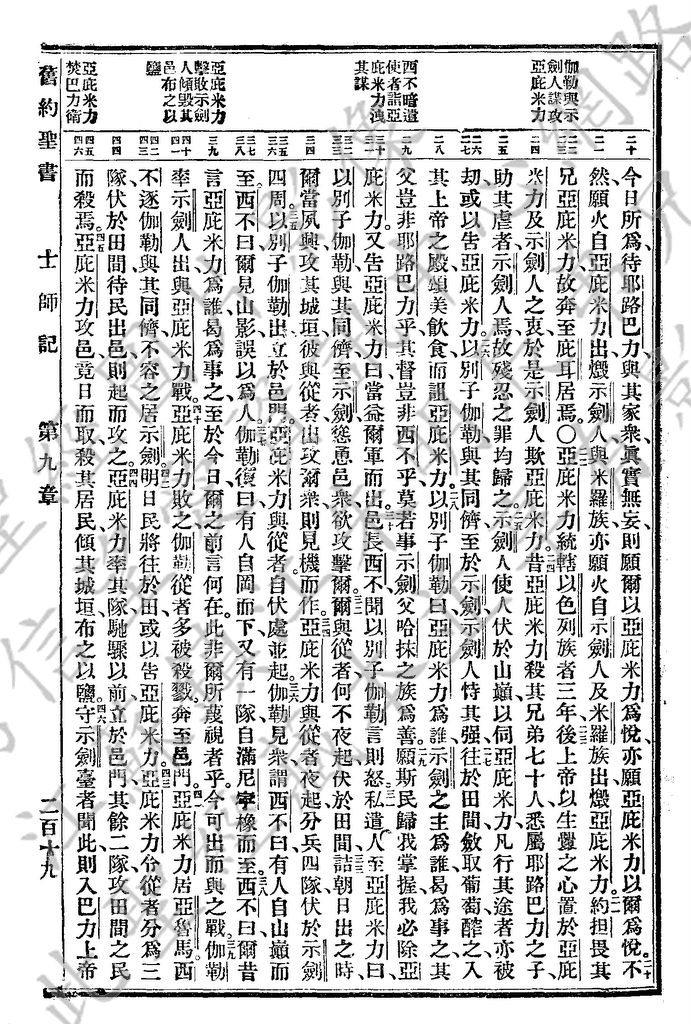 伽勒與示
劍人謀攻
亞庇米力
西不暗遣
使者詣亞
庇米力洩
其謀
亞庇米力
擊敗示劍
人傾毀其
邑布之以
鹽
亞庇米力
焚巴力衛
今日所爲待耶路巴力與其家衆眞實無妄則願爾以亞庇米力爲悅亦願亞庇米力以爾爲悅不
然願火自亞庇米力出燬示劍人與米羅族亦願火自示劍人及米羅族出燬亞庇米力約担畏其
兄亞庇米力故奔至庇耳居焉〇亞庇米力統轄以色列族者三年後上帝以生釁之心置於亞庇
米力及示劍人之衷於是示劍人欺亞庇米力昔亞庇米力殺其兄弟七十人悉屬耶路巴力之子
助其虐者示劍人焉故殘忍之罪均歸之示劍人使人伏於山巔以伺亞庇米力凡行其途者亦被
刧或以告亞庇米力以別子伽勒與其同儕至於示劍示劍人恃其强往於田間斂取葡萄醡之入
其上帝之殿頌美飲食而詛亞庇米力以別子伽勒曰亞庇米力爲誰示劍之主爲誰曷爲事之其
父豈非耶路巴力乎其督豈非西不乎莫若事示劍父哈抹之族爲善願斯民歸我掌握我必除亞
庇米力又告亞庇米力曰當益爾軍而出邑長西不聞以別子伽勒言則怒私遣人至亞庇米力曰
以別子伽勒與其同儕至示劍慫恿邑衆欲攻擊爾爾與從者何不夜起伏於田間詰朝日出之時
爾當夙興攻其城垣彼與從者出攻爾衆則見機而作亞庇米力與從者夜起分兵四隊伏於示劍
四周以別子伽勒出立於邑門亞庇米力與從者自伏處並起伽勒見衆謂西不曰有人自山巔而
至西不曰爾見山影誤以爲人伽勒復曰有人自岡而下又有一隊自滿尼寗橡而至西不曰爾昔
言亞庇米力爲誰曷爲事之至於今日爾之前言何在此非爾所蔑視者乎今可出而與之戰伽勒
率示劍人出與亞庇米力戰亞庇米力敗之伽勒從者多被殺戮奔至邑門亞庇米力居亞魯馬西
不逐伽勒與其同儕不容之居示劍明日民將往於田或以告亞庇米力亞庇米力分從者分爲三
隊伏於田間待民出邑則起而攻之亞庇米力率其隊馳驟以前立於邑門其餘二隊攻田間之民
而殺焉亞庇米力攻邑竟日而取殺其居民傾其城垣布之以鹽守示劍臺者聞此則入巴力上帝
舊約聖書 士師記 第九章 二百十九